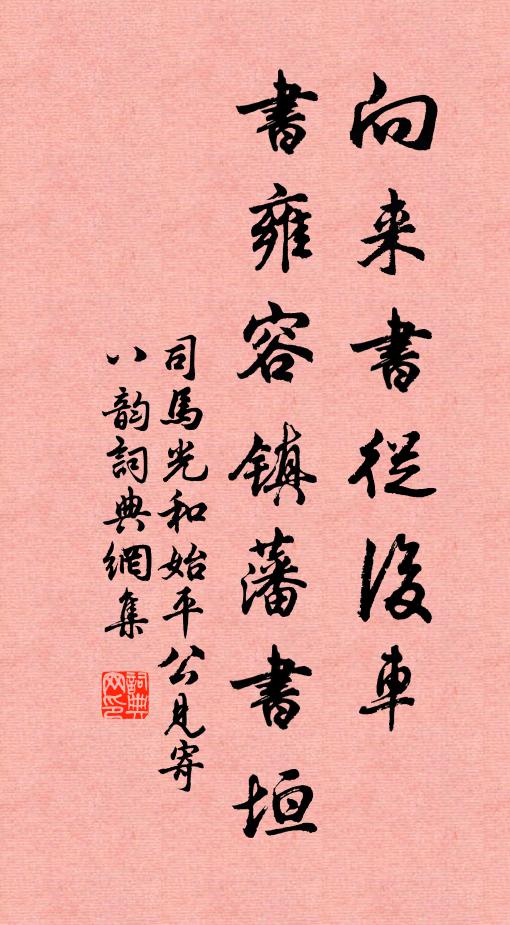 向来書從後車
書雍容鎮藩書垣
司馬光和始平公見寄
八韵詞典網集
詞典網印